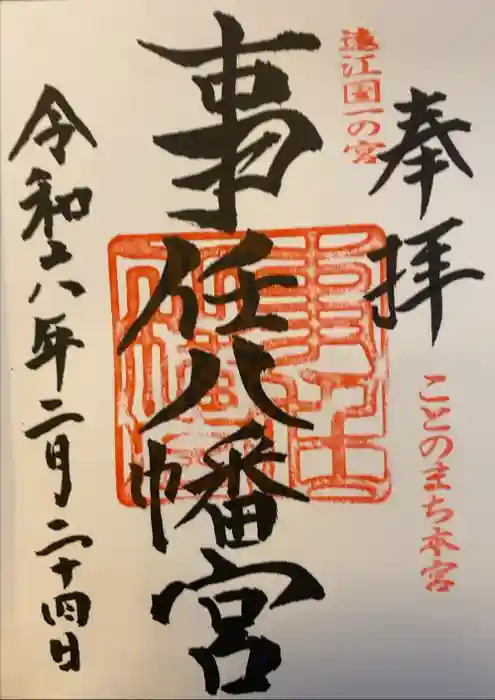 遠江国一の宮
奉拝
ことのまち本宮
事任八幡宮
令和六年二月二十四日